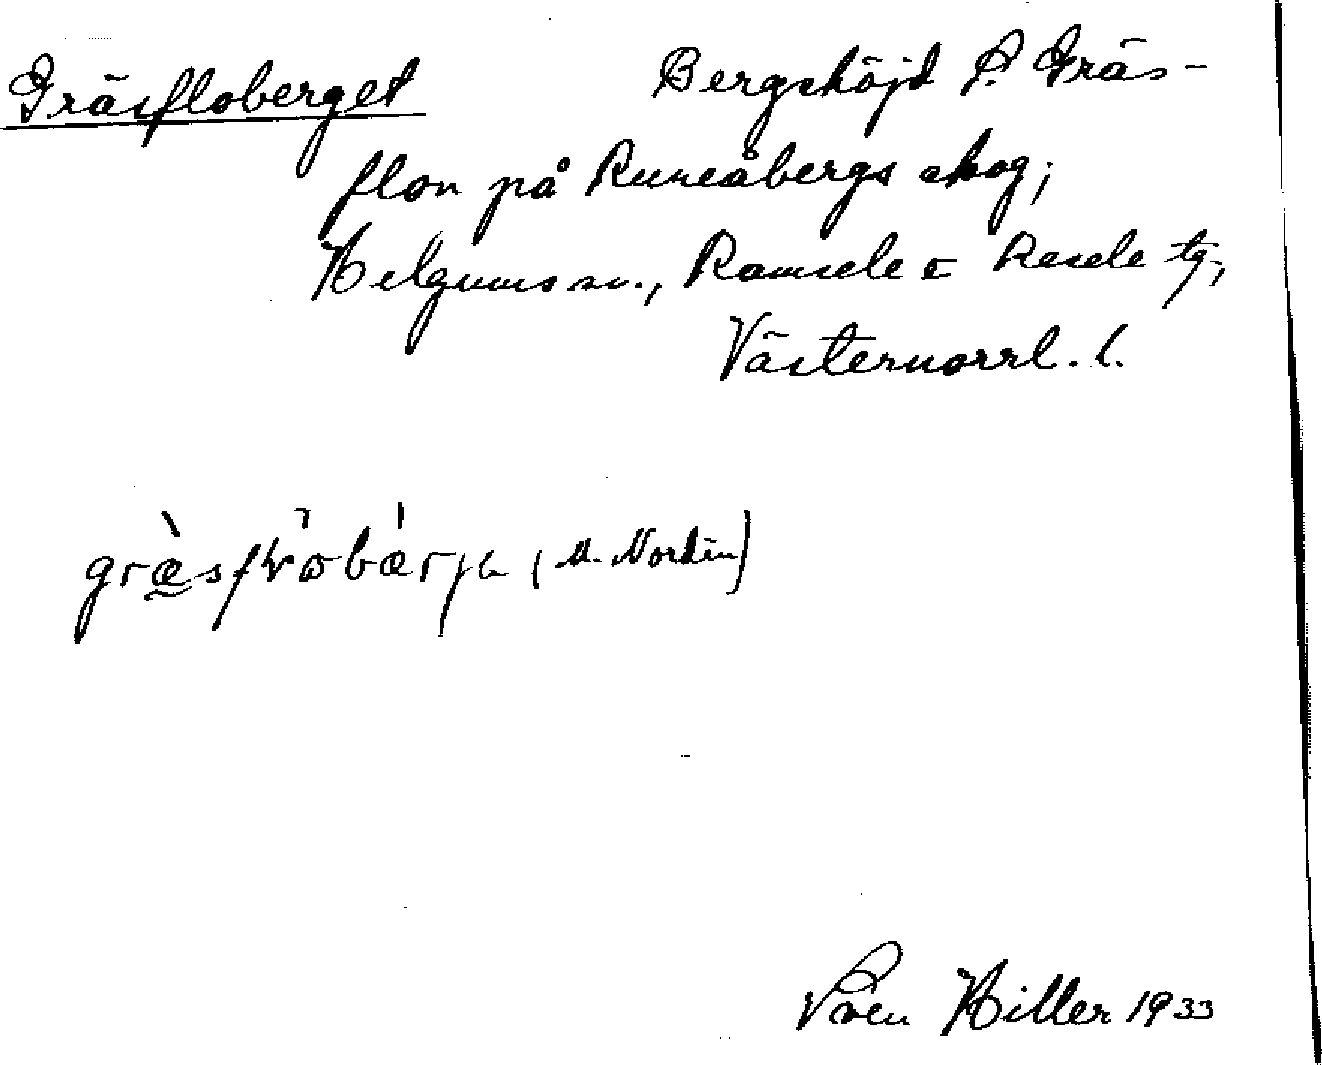 Gräsfloberget Bergshöjd S. Gräs-
flon på Runeåbergs skog;
Helgums sn., Ramsele o Resele tg,
Västernorrl. l.
(M. Nordin)
Sven Hiller 1933